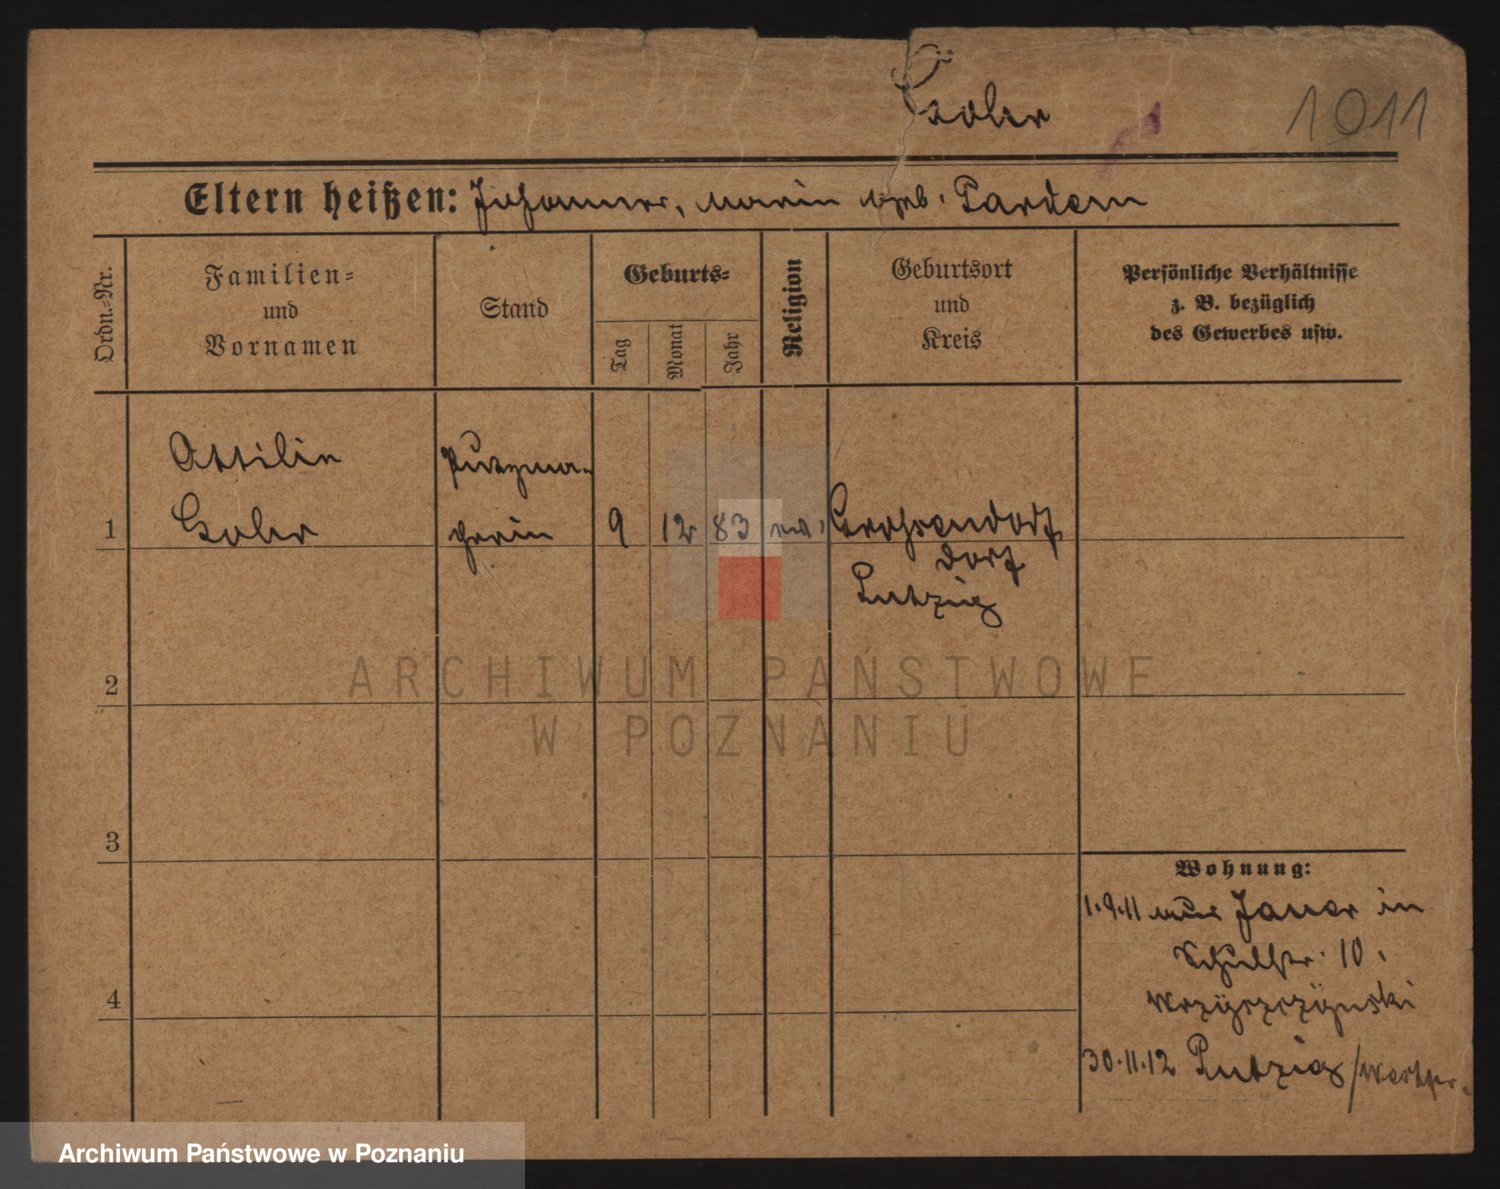 1011
Eltern heißen: Johannes, Maria geb.
Ordn.-Nr.
Familien-
und
Vornamen
Stand
Geburts-
Tag
Monat
Jahr
Religion
Geburtsort
und
Kreis
Persönliche Verhältnisse
z. B. bezüglich
des Gewerbes usw.
Ottilie
Putzma-
1
cherin
9
12
83
ev.
dorf
Putzig
ARCHIWUM PAŃSTWOWE
2
W POZNANIU
3
Wohnung:
1.9.11 aus Janer in
Schulstr. 10.
4
30.11.12 Putzig
Archiwum Państwowe w Poznaniu